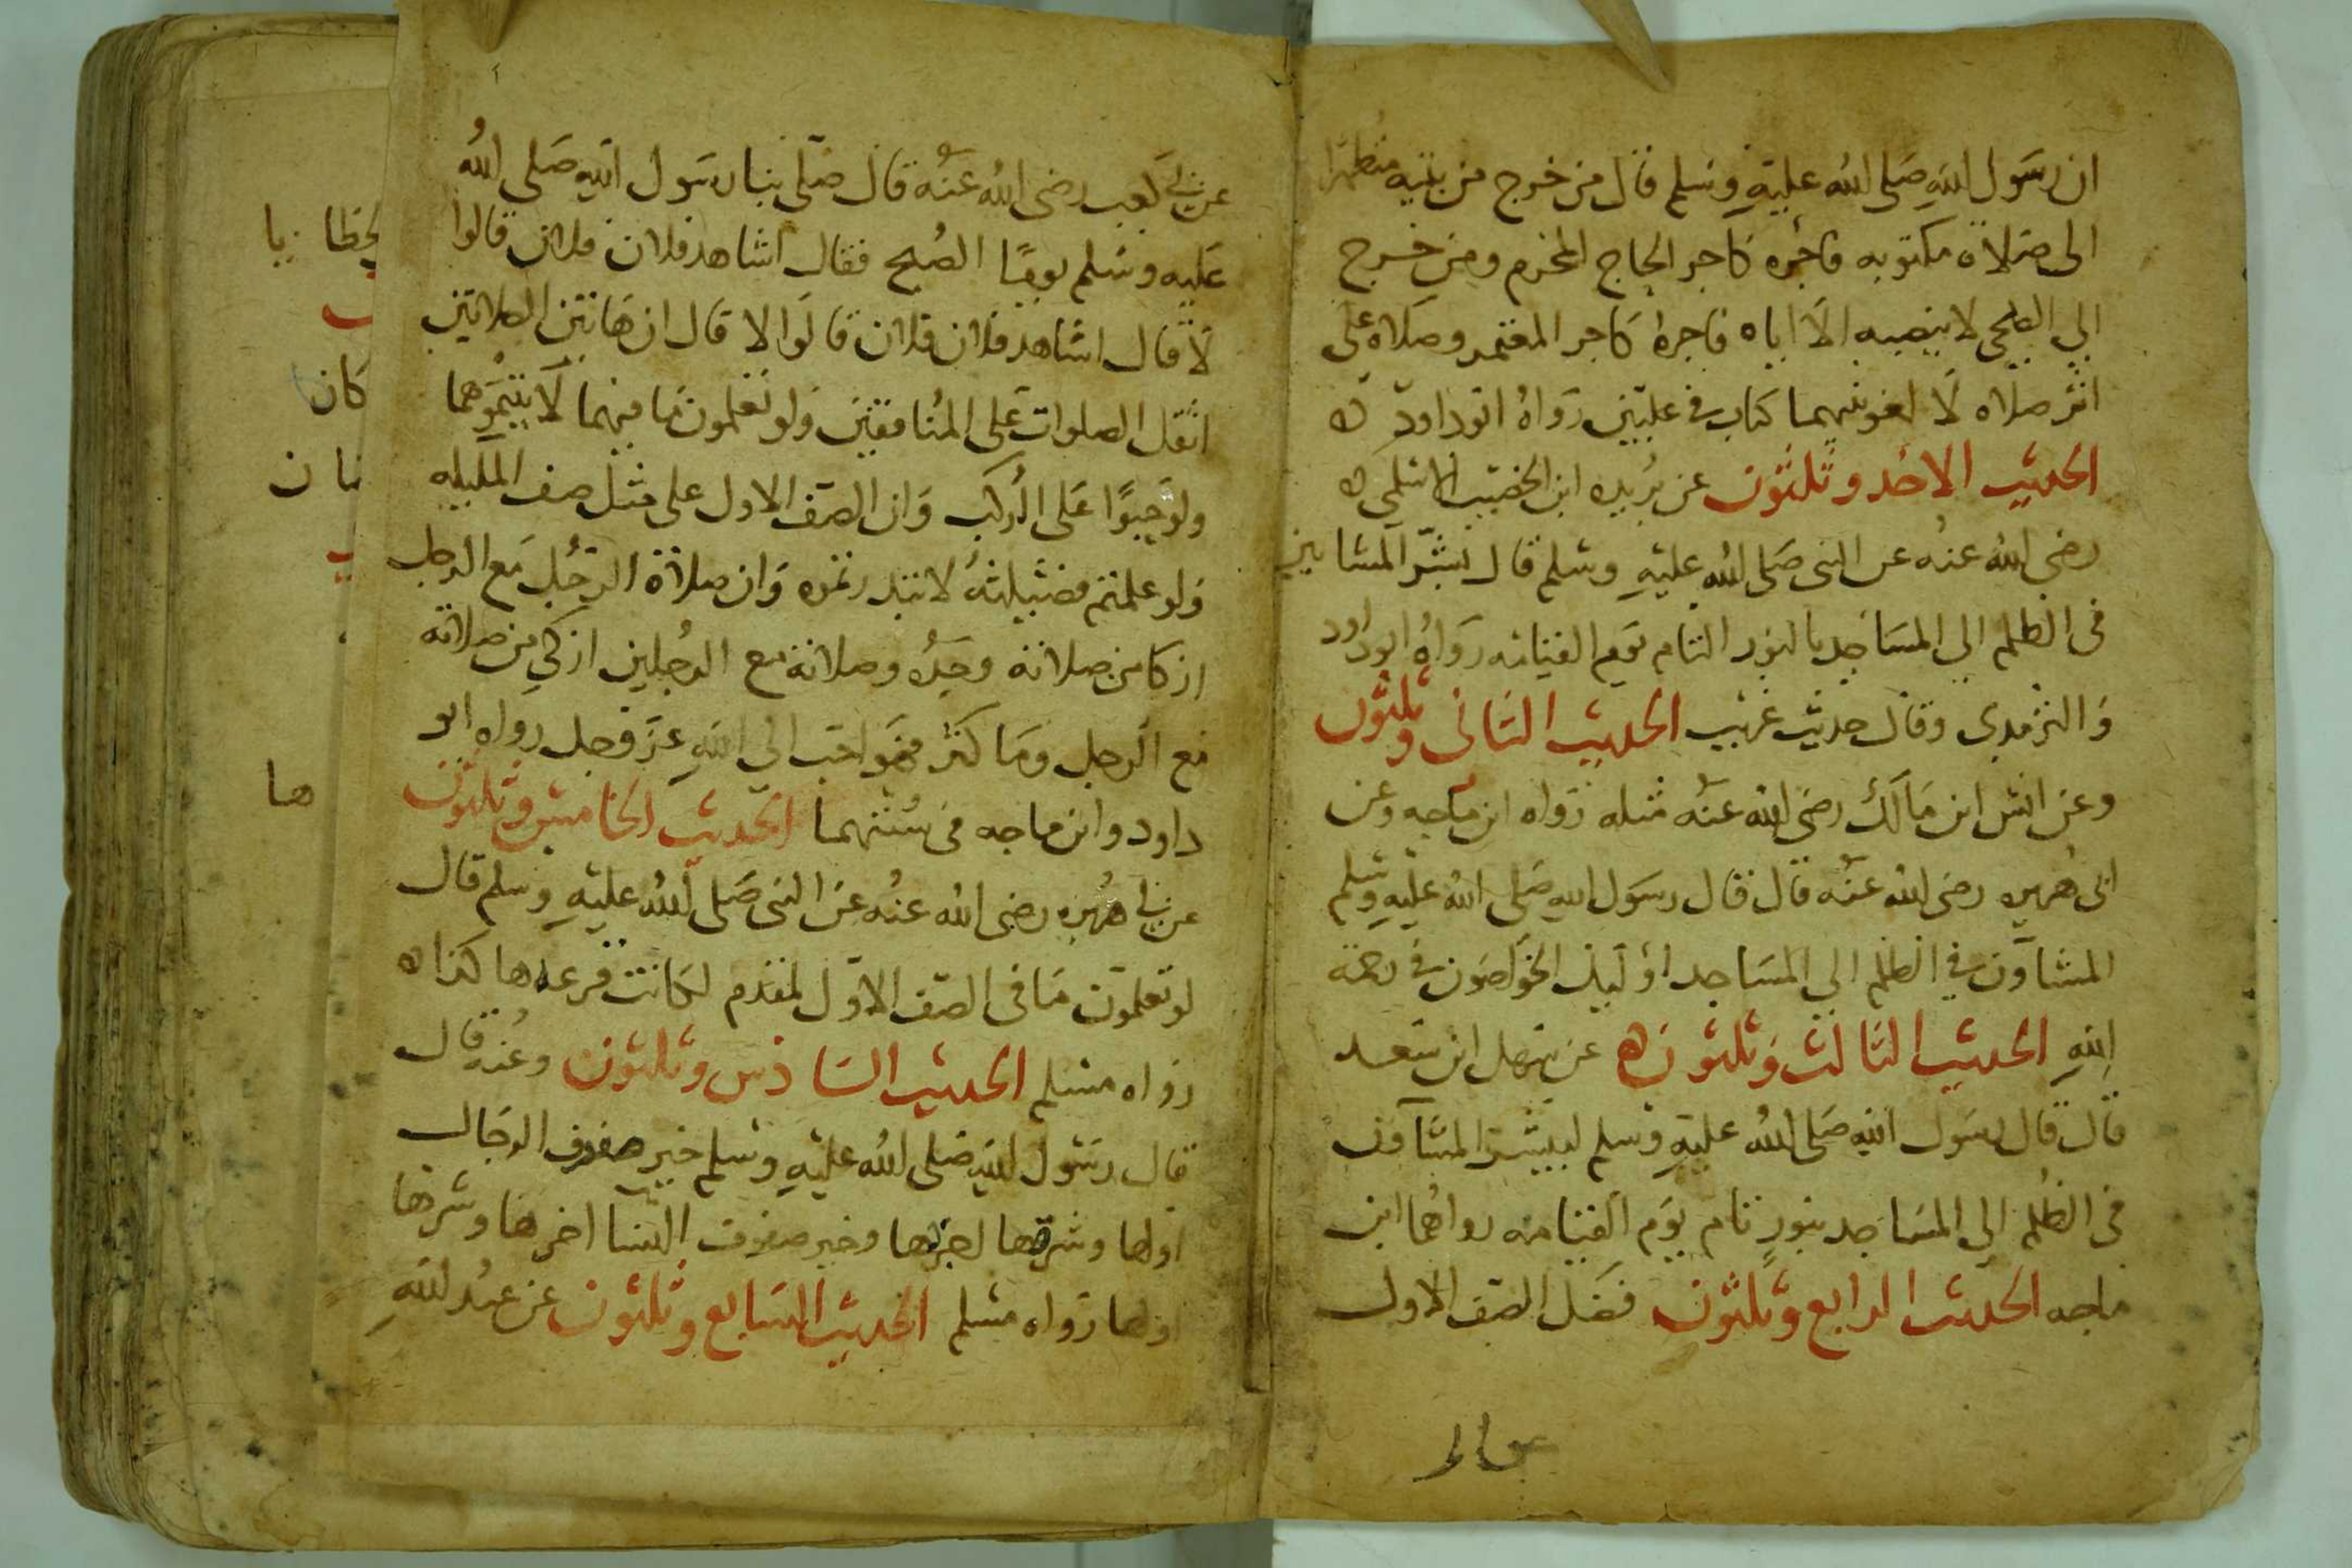 ان رسول الله صلى الله عليه وسلم قال من خرج من بيته متطهرا
الى صلاة مكتوبه فاجره كاجر الحاج المحرم ومن خرج
الى الضحى لا ينصبه الا اياه فاجره كاجر المعتمر وصلاه على
اثر صلاه لا لغو بينهما كتاب في عليين رواه ابو داود ه
الحديث الاحد وثلثون عن بريده ابن الخصيب الاسلمي ه
رضى الله عنه عن النبى صلى الله عليه وسلم قال بشر المشايين
فى الظلم الى المساجد بالنور التام يوم القيامه رواه ابو داود
والترمدى وقال حديث غريب الحديث الثانى وثلثون
وعن انس ابن مالك رضى الله عنه مثله رواه ابن ماجه وعن
ابى هريره رضى الله عنه قال قال رسول الله صلى الله عليه وسلم
المشاؤن في الظلم الى المساجد اوليك الخواضون في رحمة
الله الحديث الثالث وثلثون ه عن سهل ابن سعد
قال قال رسول الله صلى الله عليه وسلم ليبشر المشاون
فى الظلم الى المساجد بنور تام يوم القيامه رواهما ابن
ماجه الحديث الرابع وثلثون فضل الصف الاول
عن ابي كعب رضى الله عنه قال صلى بنا رسول الله صلى الله
عليه وسلم يوما الصبح فقال اشاهد فلان فلان قالوا
لا قال اشاهد فلان فلان قالوا لا قال ان هاتين الصلاتين
اثقل الصلوات على المنافقين ولو تعلمون ما فيهما لاتيتموهما
ولو حبوا على الركب وان الصف الاول على مثل صف المليكه
ولو علمتم فضيلته لابتدرتموه وان صلاة الرجل مع الرجل
ازكا من صلاته وحده وصلاته مع الرجلين ازكى من صلاته
مع الرجل وما كثر فهو احب الى الله عز وجل رواه ابو
داود وابن ماجه فى سننهما الحديث الخامس وثلثون
عن ابي هريره رضى الله عنه عن النبى صلى الله عليه وسلم قال
لو تعلمون ما فى الصف الاول المقدم لكانت قرعه ها كذا ه
رواه مسلم الحديث السادس وثلثون وعنه قال
قال رسول الله صلى الله عليه وسلم خير صفوف الرجال
اولها وشرها اخرها وخير صفوف النسا اخرها وشرها
اولها رواه مسلم الحديث السابع وثلثون عن عبد الله
كان
ها